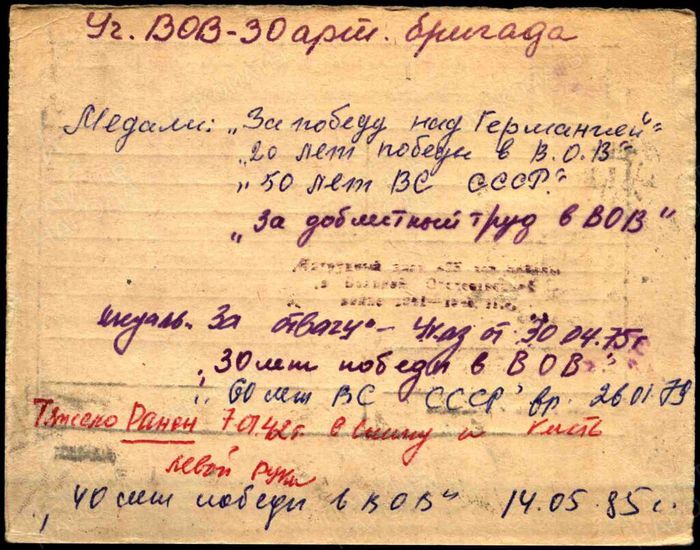 Уч. ВОВ-30 арт. бригада
Медали: „За победу над Германией"
„20 лет победы в В.О.В"
„50 лет ВС СССР."
„За доблестный труд в ВОВ"
Нагрудный знак «25 лет победы
в Великой Отечественной
войне 1941—1945 гг.»
медаль „За отвагу" – Указ от 30.04.75г
„30 лет победы в ВОВ"
„60 лет ВС СССР" вр. 26.01.79
Тяжело Ранен 7.01.42г. в спину и кисть
левой руки
„40 лет победы в ВОВ" 14.05.85г.